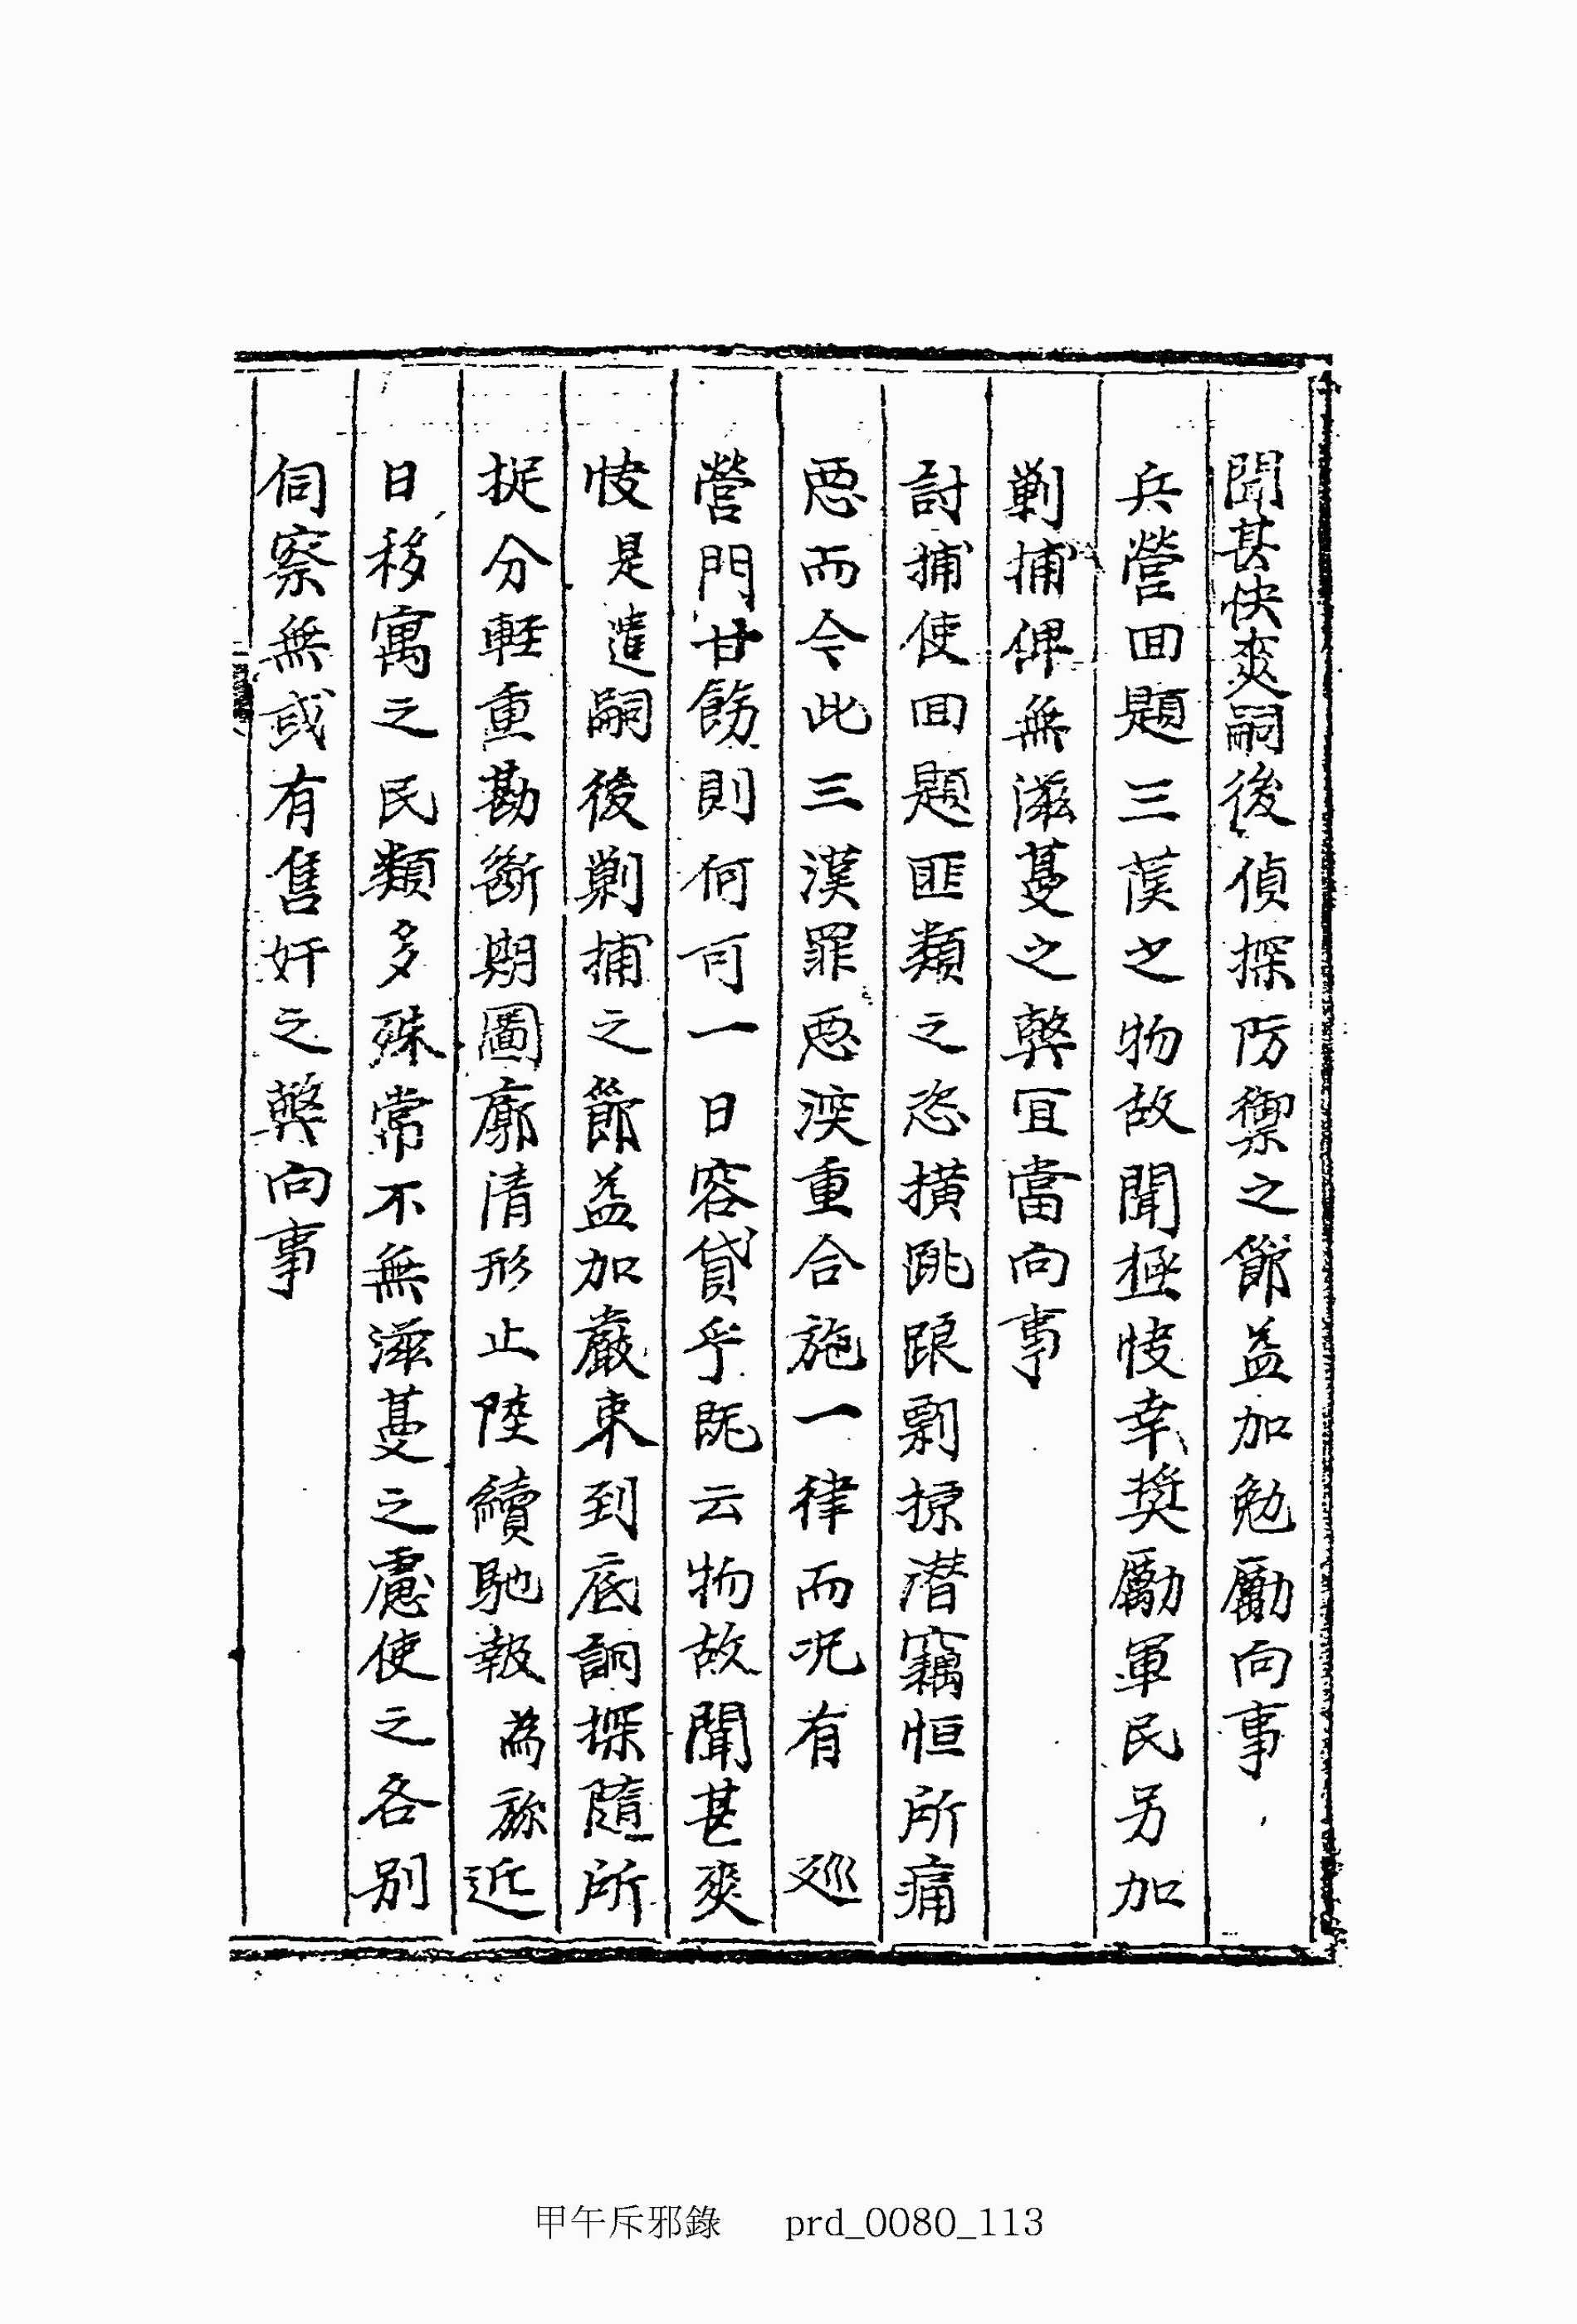 聞甚快爽嗣後偵探防禦之節益加勉勵向事
兵營回題三漢之物故聞極快幸奬勵軍民另加
剿捕俾無滋蔓之弊宜當向事
討捕使回題匪類之恣橫跳踉剽掠潛竊恒所痛
惡而今此三漢罪惡深重合施一律而况有 廵
營門甘飭則何可一日容貸乎旣云物故聞甚爽
快是遣嗣後剿捕之節益加嚴束到底詗探隨所
捉分輕重勘斷期圖廓清形止陸續馳報爲旀近
日移寓之民類多殊常不無滋蔓之慮使之各別
伺察無或有售奸之弊向事
甲午斥邪錄 prd_0080_113